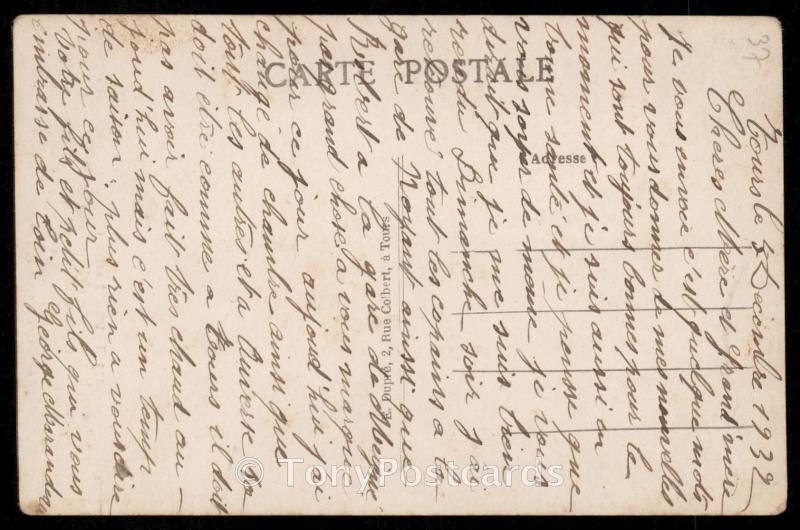 37
CARTE POSTALE
Adresse
E. Dupré, 2, Rue Colbert, à Tours
Tours le 5 Decembre 1932
Cheres Mère et grand'mère
Je vous envoie c'est quelque mots
pour vous donner de mes nouvelles
qui sont toujours bonnes pour le
moment et je suis aussi en
bonne santé et je pensse que
vous soyer de meme je vous
dirait que je me suis bien
rendu Dimanche soir j'ai
retouvé tout les copains a la
gare de Noyant ainsi que
Robert a la gare de
pas grand chose a vous marquer
pour ce jour aujoud'hui j'ai
changé de chambre ainsi que
tout les autres et a
doit etre comme a Tours il doit
pas avoir fait très chaud au-
joud'hui mais c'est un temp
de saison, puis rien a vous dire
pour ce jour
Votre fils et petit fils qui vous
embrasse de loin George
© TonyPostcards